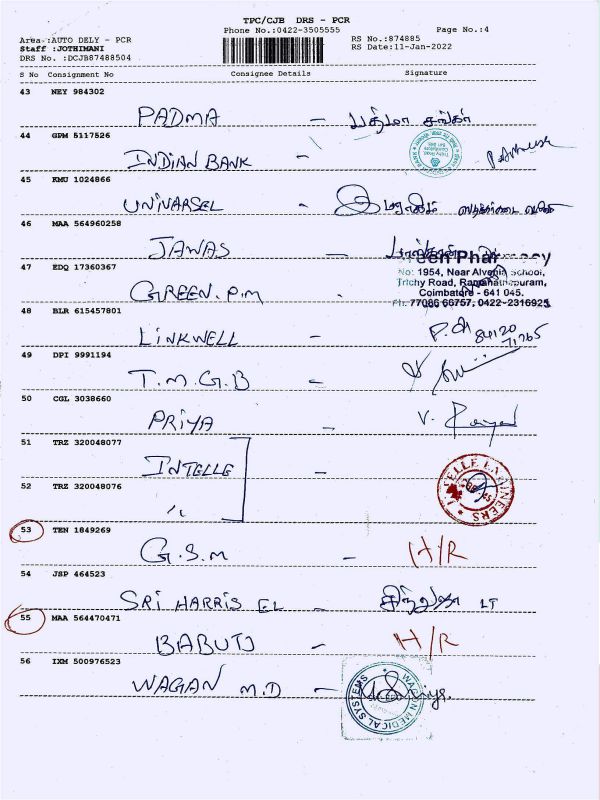 TPC/CJB DRS - PCR
Phone No.:0422-3505555
Page No.:4
Area :AUTO DELY - PCR
RS No.:874885
Staff :JOTHIMANI
RS Date:11-Jan-2022
DRS No. :DCJB87488504
S No Consignment No Consignee Details Signature
43 NEY 984302
PADMA - பத்மா
44 GPM 5117526
INDIAN BANK -
45 KMU 1024866
UNIVARSEL -
46 MAA 564960258
JAWAS -
47 EDQ 17360367
Green Pharmacy
No: 1954, Near Alvenia School,
Trichy Road, Ramanathapuram,
Coimbatore - 641 045.
Ph: 77086 66757, 0422-2316925
GREEN. P.M -
48 BLR 615457801
LINKWELL -
49 DPI 9991194
T.M.G.B -
50 CGL 3038660
PRIYA - V.
51 TRZ 320048077
INTELLE -
52 TRZ 320048076
"
53 TEN 1849269
G.S.M - H/R
54 JSP 464523
SRI HARRIS EL -
55 MAA 564470471
BABUTJ - H/R
56 IXM 500976523
WAGAN M.D -
WAGON MEDICAL SYSTEMS